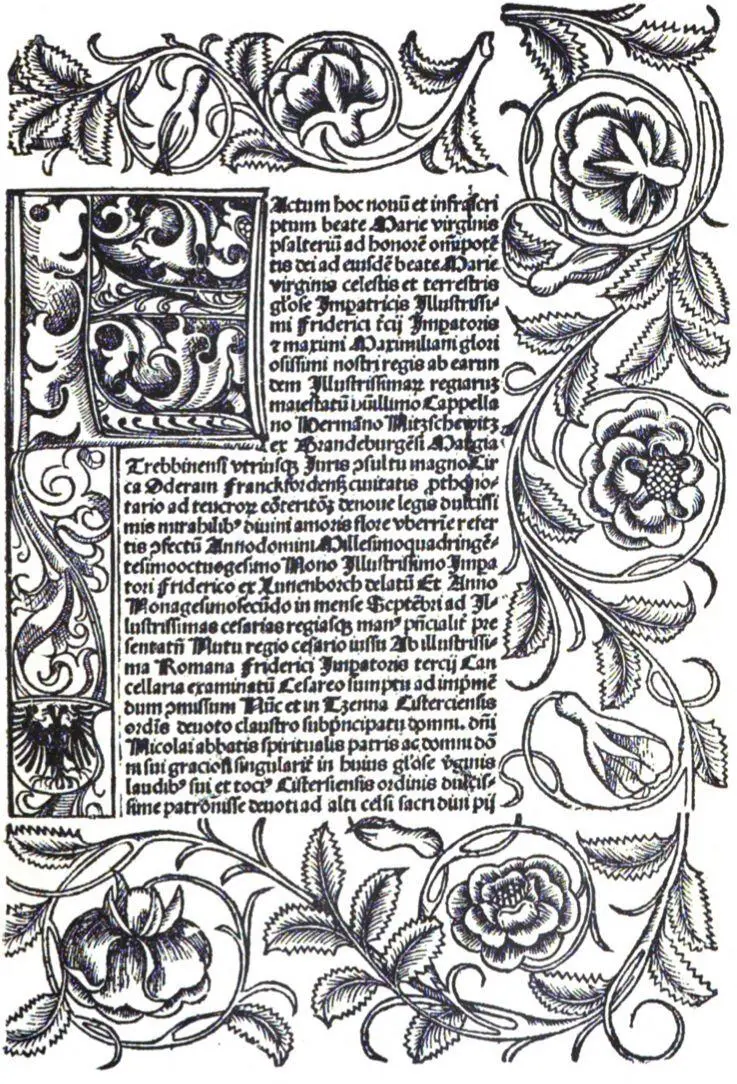 Factum hoc nouū et infrascri
ptum beate Marie virginis
psalteriū ad honorē omīpotē
tis dei ad eiusdē beate Marie
virginis celestis et terrestris
glose Impatricis Illustrissi-
mi Friderici tcij Impatoris
⁊ maximi Maximiliani glori
osissimi nostri regis ab earun
dem Illustrissimaꝝ regiarūꝫ
maiestatū Cappella
no Hermāno Nitzschewitz
ex Brandeburgēsi Margia
Trebbinensi vtriusqꝫ Iuris ꝯsultu magno Cir
ca Oderam Franckfordenß ciuitatis ꝓthono-
tario ad teucroꝝ cōteritōꝫ denoue legis dulcissi
mis mirabilibꝰ diuini amoris flore vberrie refer
tis ꝯfectū Annodomini Millesimoquadringē-
tesimooctuogesimo Nono Illustrissimo Impa
tori Friderico ex delatū Et Anno
Nonagesimosecūdo in mense Septēbri ad Il-
lustrissimas cesarias regiasqꝫ manꝰ pñcialit pre
sentatū Nutu regio cesario iussu Ab illustrissi-
ma Romana Friderici Impatoris tercij Can
cellaria examinatū Cesareo sumptu ad impmē
dum ꝯmissum Nūc et in Tzenna Cisterciensis
ordīs deuoto claustro subpncipatu domni. dñi
Nicolai abbatis spiritualis patris ac domni dō
ni sui graciosi singularit in huius glose vginis
laudibꝰ sui et tociꝰ Cistersiensis ordinis dulcis-
sime patronisse deuoti ad alti celsi sacri diui pij